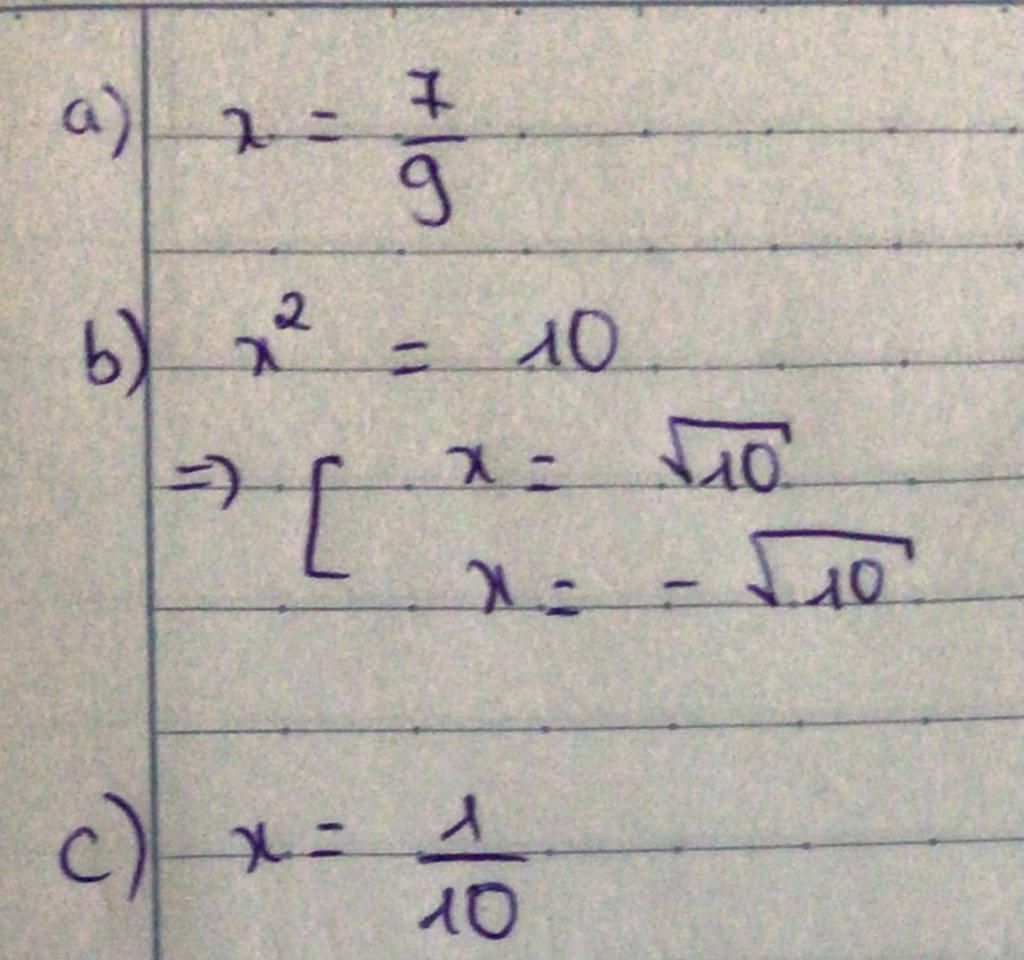 a) x = 7/9
b) x² = 10
=> [ x = √10
x = - √10
c) x = 1/10